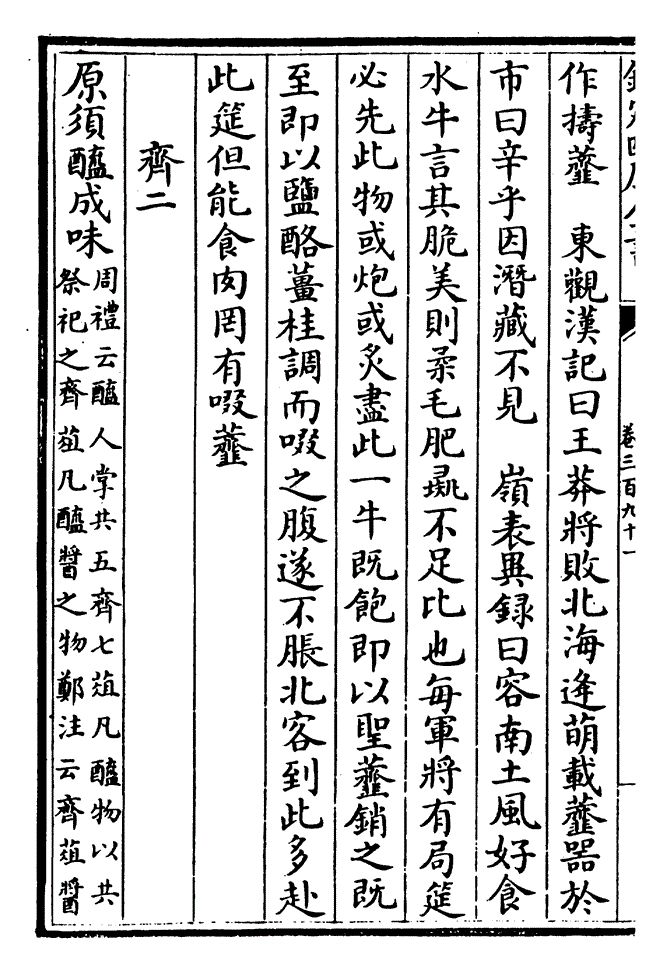 卷三百九十一
作擣虀　東觀漢記曰王莽將敗北海逄萌載虀器於
市曰辛乎因潛藏不見　嶺表異録曰容南土風好食
水牛言其脆美則柔毛肥彘不足比也每軍將有局筵
必先此物或炮或炙盡此一牛既飽即以聖虀銷之既
至即以鹽酪薑桂調而啜之腹遂不脹北客到此多赴
此筵但能食肉罔有啜虀
齊二
原須醯成味周禮云醯人掌共五齊七葅凡醯物以共
祭祀之齊葅凡醯醬之物鄭注云齊葅醬